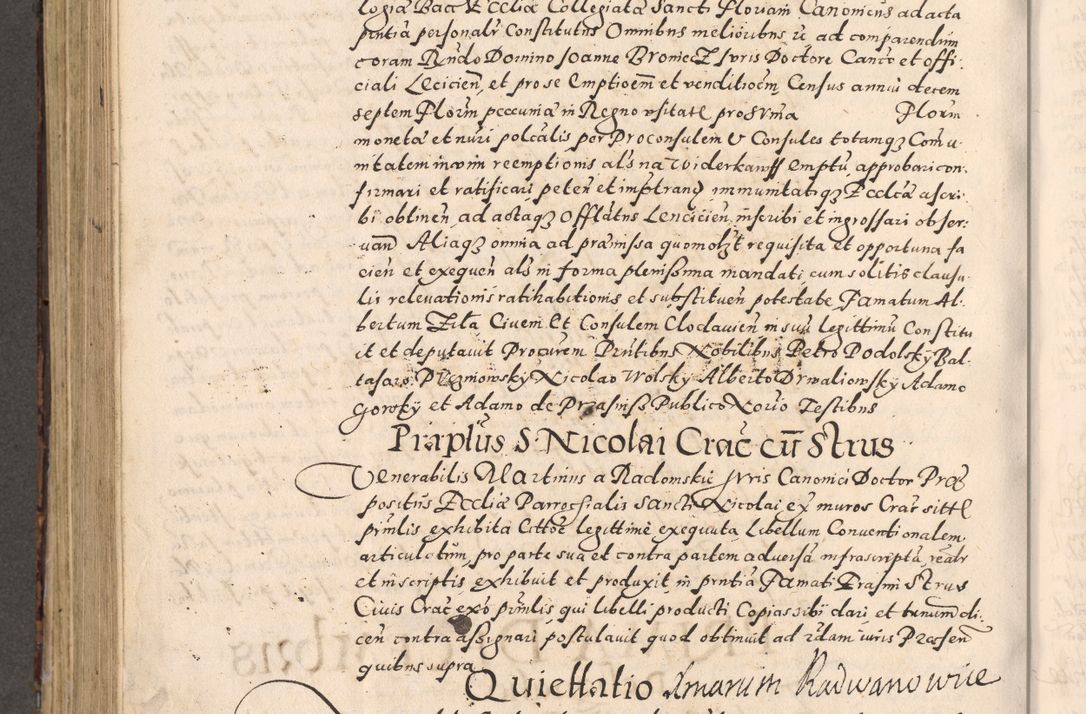 logia Bacc Eccliæ Collegiatæ Sancti Floriani Canonicus ad acta
pntia personalr Constitutus Omnibus melioribus et ad comparendum
coram Rndo Domino Joanne Broniecz Juris Doctore Canco et offi-
ciali Lecicien et pro se Emptioem et venditioem Census annui decem
septem Florin pecunia in Regno usitate pro summa Florin
moneta et nuri polcalis per Proconsulem & Consules totamq3 Comu-
nitatem in vim reemptionis als na widerkauff emptu approbari con-
firmari et ratificari peten et impetrand immunitatiq3 Eccl̃ca ascri-
bi obtinen ad actaq3 Offilatus Lencicien inscribi et ingrossari obser-
uand Aliaq3 omnia ad præmissa quomolzt requisita et opportuna fa
cien et exequen als in forma plenissima mandati cum solitis clausu-
lis relevationis ratihabitionis et substituen potestate Famatum Al-
bertum Zila Ciuem Et Consulem Clodauien in suu legittimu Constitu
it et deputauit Procurem Pntibus Nobilibus Petro Podolsky Bal-
tasaro Nicolao Wolsky Alberto Drwaliowsky Adamo
Gorsky et Adamo de Prasniss Publico Norio Testibus
Præptus S Nicolai Crac cu Strus
Venerabilis Martinus a Radomskie Juris Canonici Doctor Præ
positus Eccliæ Parrochialis Sancti Nicolai ex muros Crac sitt
pimlis exhibita Cittoe legittime exequuta Libellum Conventionalem
articulatum pro parte sua et contra partem aduersa infrascripta realr
et in scriptis exhibuit et produxit in pntia Famati Erasmi Strus
Ciuis Crac exo pimlis qui libelli producti Copias sibi dari et tnum di-
cen contra assignari postulauit quod obtinuit ad idam iuris Præsen
quibus supra
Quiettatio Amarum Radwanowice